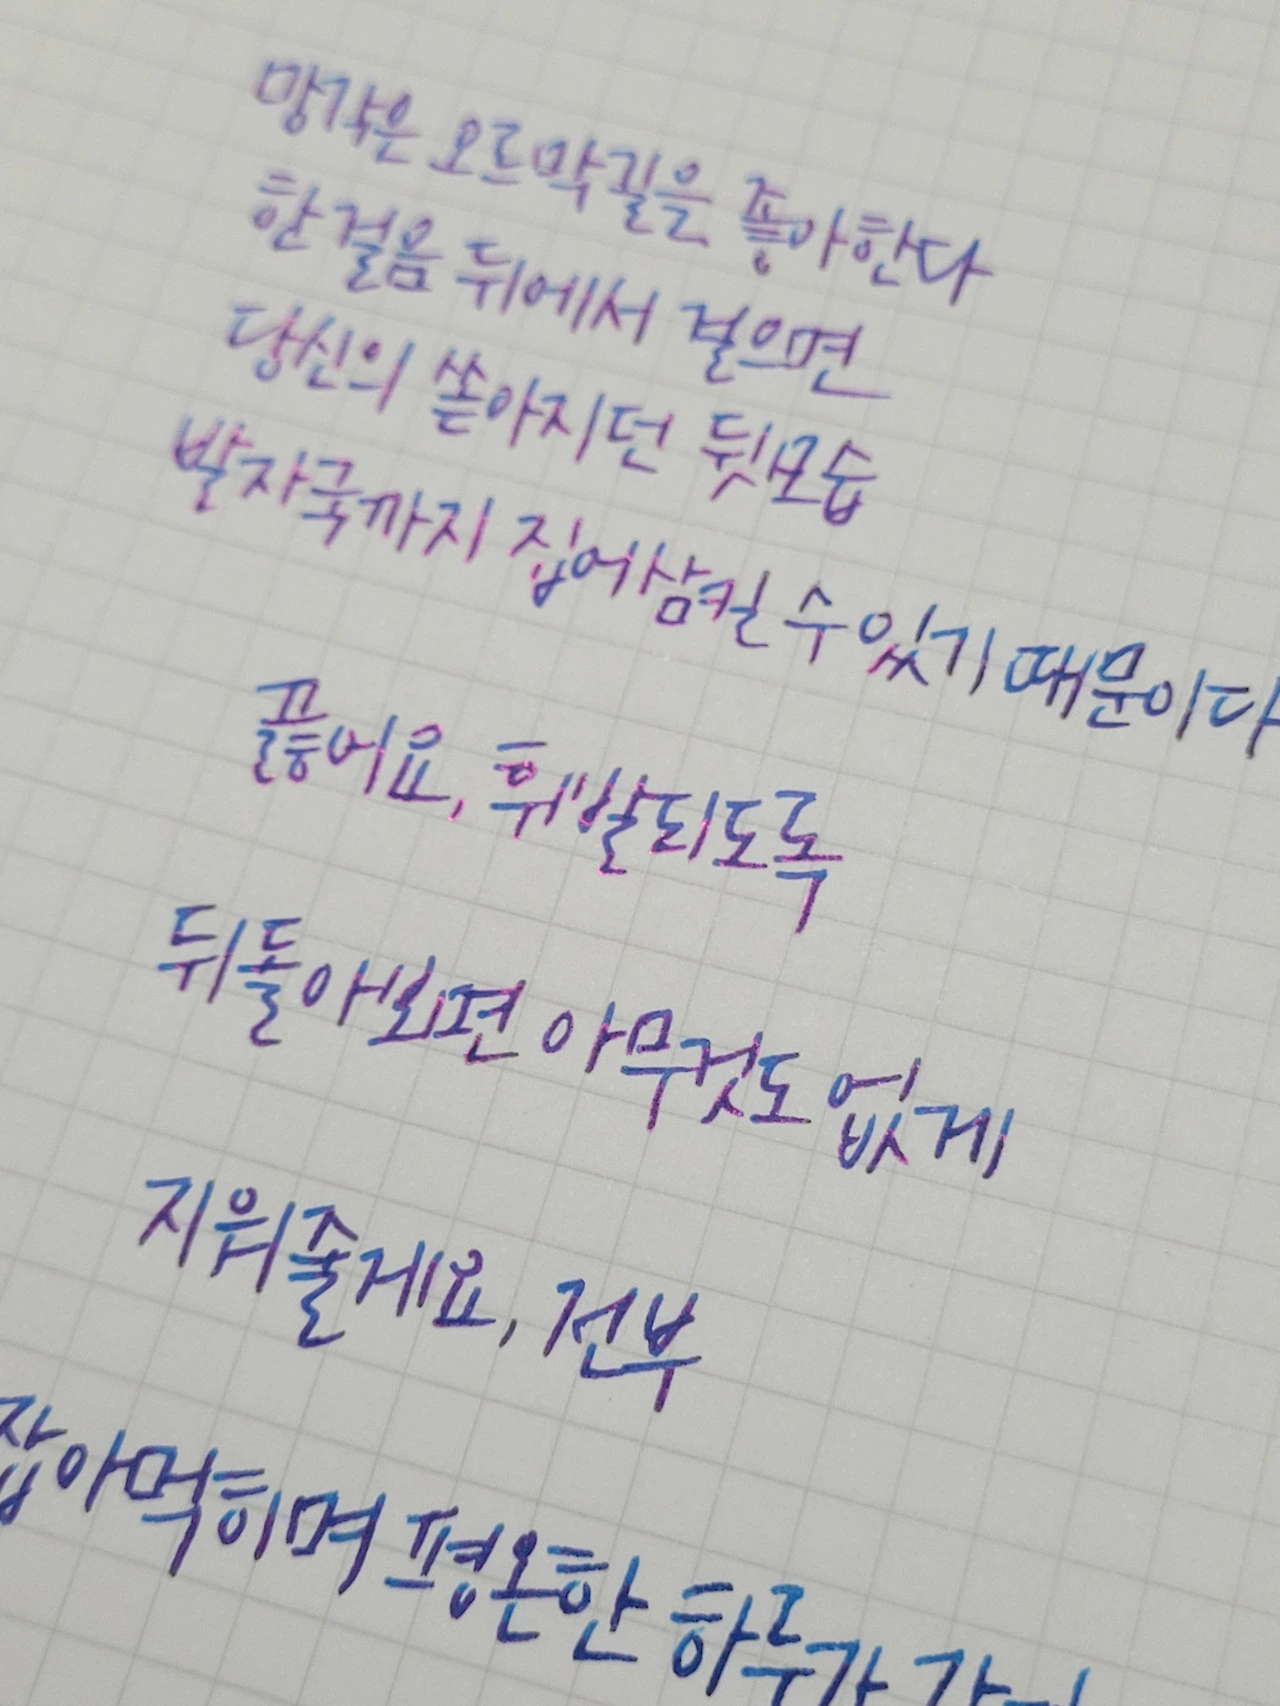 망각은 오르막길을 좋아한다
한 걸음 뒤에서 걸으면
당신의 쏟아지던 뒷모습
발자국까지 집어삼킬 수 있기 때문이다
끓어요, 휘발되도록
뒤돌아보면 아무것도 없게
지워줄게요, 전부
잡아먹히며 평온한 하루가